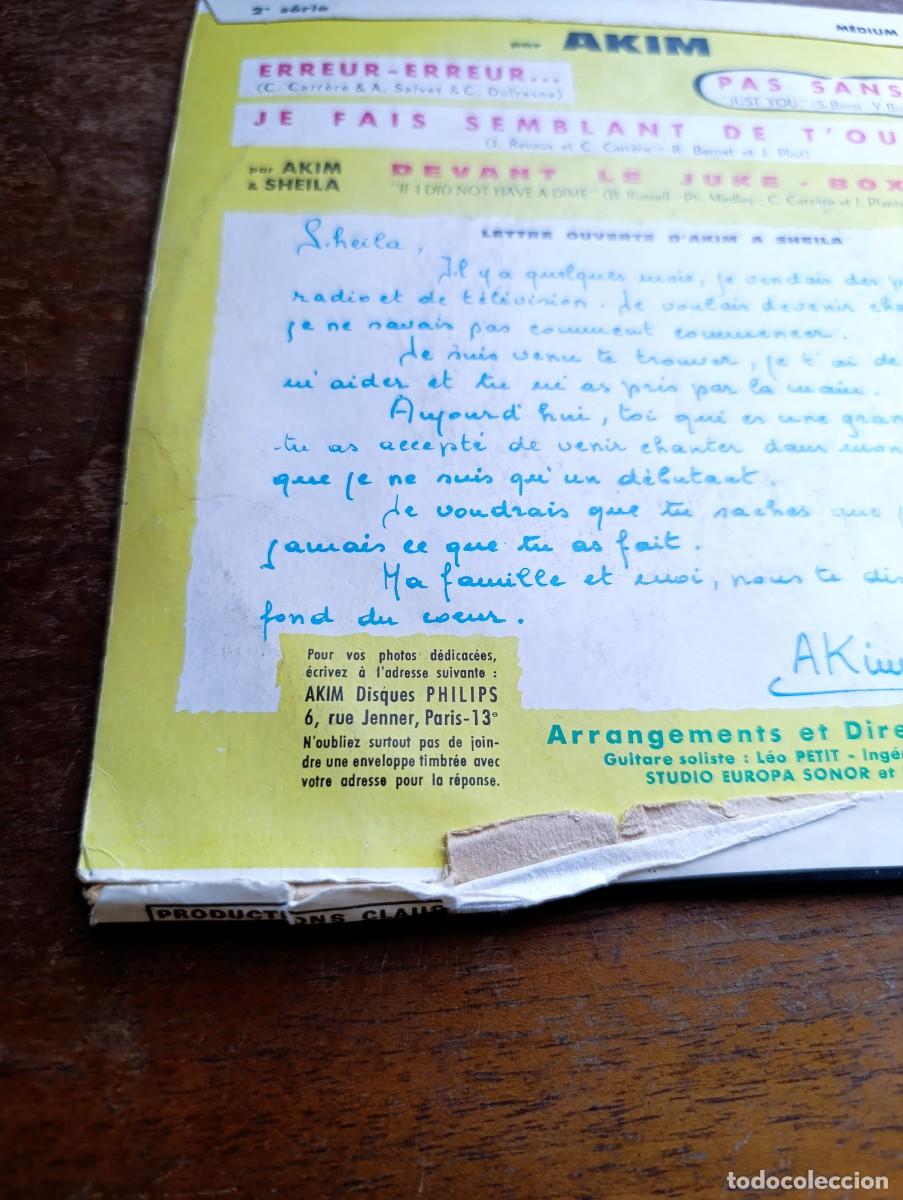 2e série
MÉDIUM
par AKIM
ERREUR-ERREUR...
(C. Carrère & A. Salvet & C. Dufresne)
PAS SANS
"JUST YOU" (S. Bono - V.
JE FAIS SEMBLANT DE T'OU
(J. Revaux et C. Carrère - R. Bernet et J. Plait)
par AKIM
& SHEILA
DEVANT LE JUKE-BOX
"IF I DID NOT HAVE A DIME" (B. Russell - Ph. Medley - C. Carrère et J. Plante
LETTRE OUVERTE D'AKIM A SHEILA
Sheila,
Il y a quelques mois, je vendais des p
radio et de télévision. Je voulais devenir cha
je ne savais pas comment commencer.
Je suis venu te trouver, je t'ai de
m'aider et tu m'as pris par la main.
Aujourd'hui, toi qui es une gran
tu as accepté de venir chanter dans mon
que je ne suis qu'un débutant.
Je voudrais que tu saches que
jamais ce que tu as fait.
Ma famille et moi, nous te dis
fond du coeur.
AKim
Pour vos photos dédicacées,
écrivez à l'adresse suivante :
AKIM Disques PHILIPS
6, rue Jenner, Paris-13e
N'oubliez surtout pas de join-
dre une enveloppe timbrée avec
votre adresse pour la réponse.
Arrangements et Dire
Guitare soliste : Léo PETIT - Ingé
STUDIO EUROPA SONOR et
PRODUCTIONS CLAU
todocoleccion